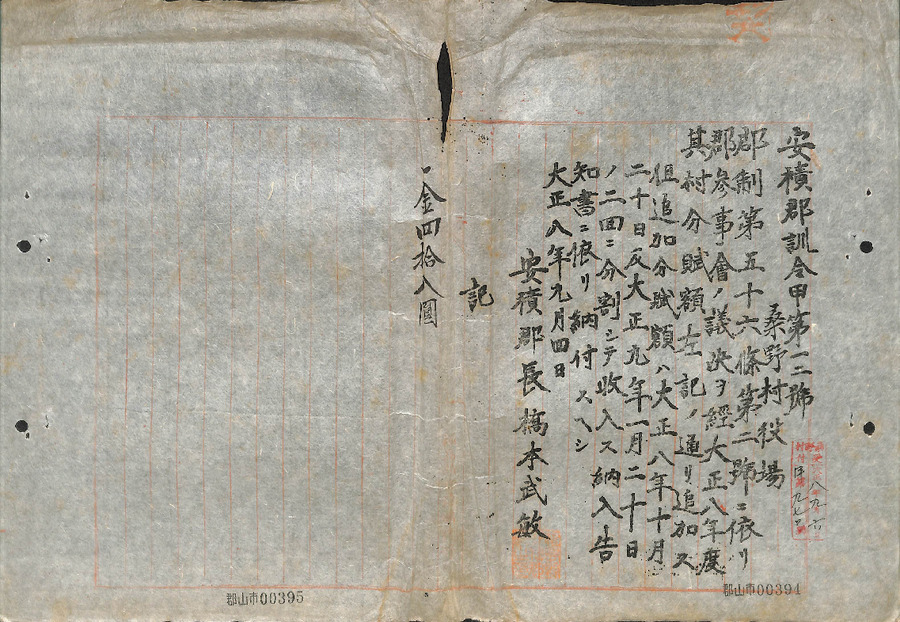 安積郡訓令甲第一二號
桑野村役場
郡制第五十六條第二號ニ依リ
郡參事會ノ議決ヲ經大正八年度
其村分賦額左記ノ通リ追加ス
但追加分賦額ハ大正八年十月
二十日及大正九年一月二十日
ノ二回ニ分割シテ收入ス納入告
知書ニ依リ納付スヘシ
大正八年九月四日
安積郡長橋本武敏
記
一金四拾八圓
郡山市00394
郡山市00395